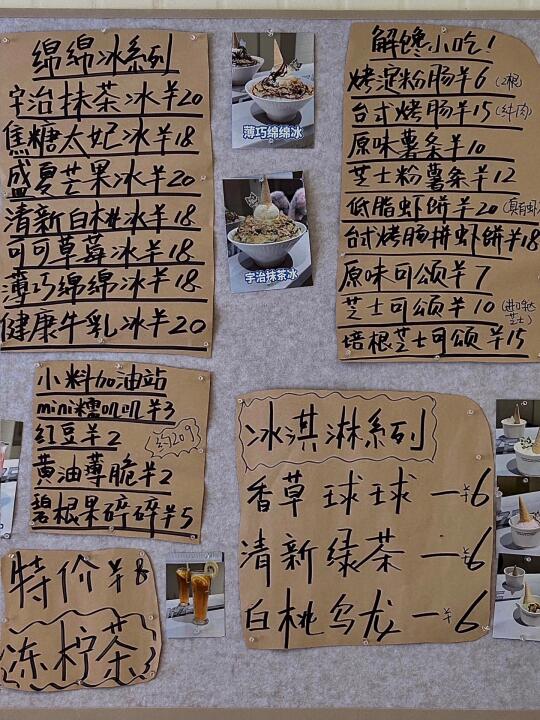 绵绵冰系列
宇治抹茶冰￥20
焦糖太妃冰￥18
盛夏芒果冰￥20
清新白桃冰￥18
可可草莓冰￥18
薄巧绵绵冰￥18
健康牛乳冰￥20
薄巧绵绵冰
宇治抹茶冰
解馋小吃！
烤淀粉肠￥6（2根）
台式烤肠￥15（纯肉）
原味薯条￥10
芝士粉薯条￥12
低脂虾饼￥20（真有虾）
台式烤肠拼虾饼￥18
原味可颂￥7
芝士可颂￥10
培根芝士可颂￥15
小料加油站
mini糯叽叽￥3
红豆￥2 约20g
黄油薄脆￥2
碧根果碎碎￥5
冰淇淋系列
香草球球—￥6
清新绿茶—￥6
白桃乌龙—￥6
特价￥8
冻柠茶